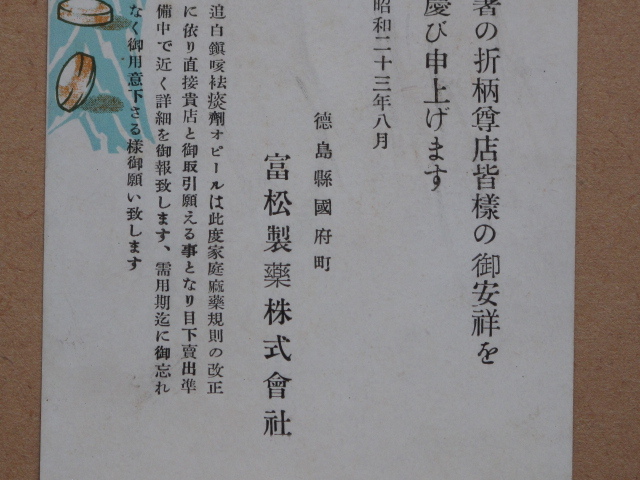 暑の折柄尊店皆樣の御安祥を
慶び申上げます
昭和二十三年八月
德島縣國府町
富松製藥株式會社
追白鎭咳袪痰劑オピールは此度家庭麻藥規則の改正
に依り直接貴店と御取引願える事となり目下賣出準
備中で近く詳細を御報致します、需用期迄に御忘れ
なく御用意下さる樣御願い致します